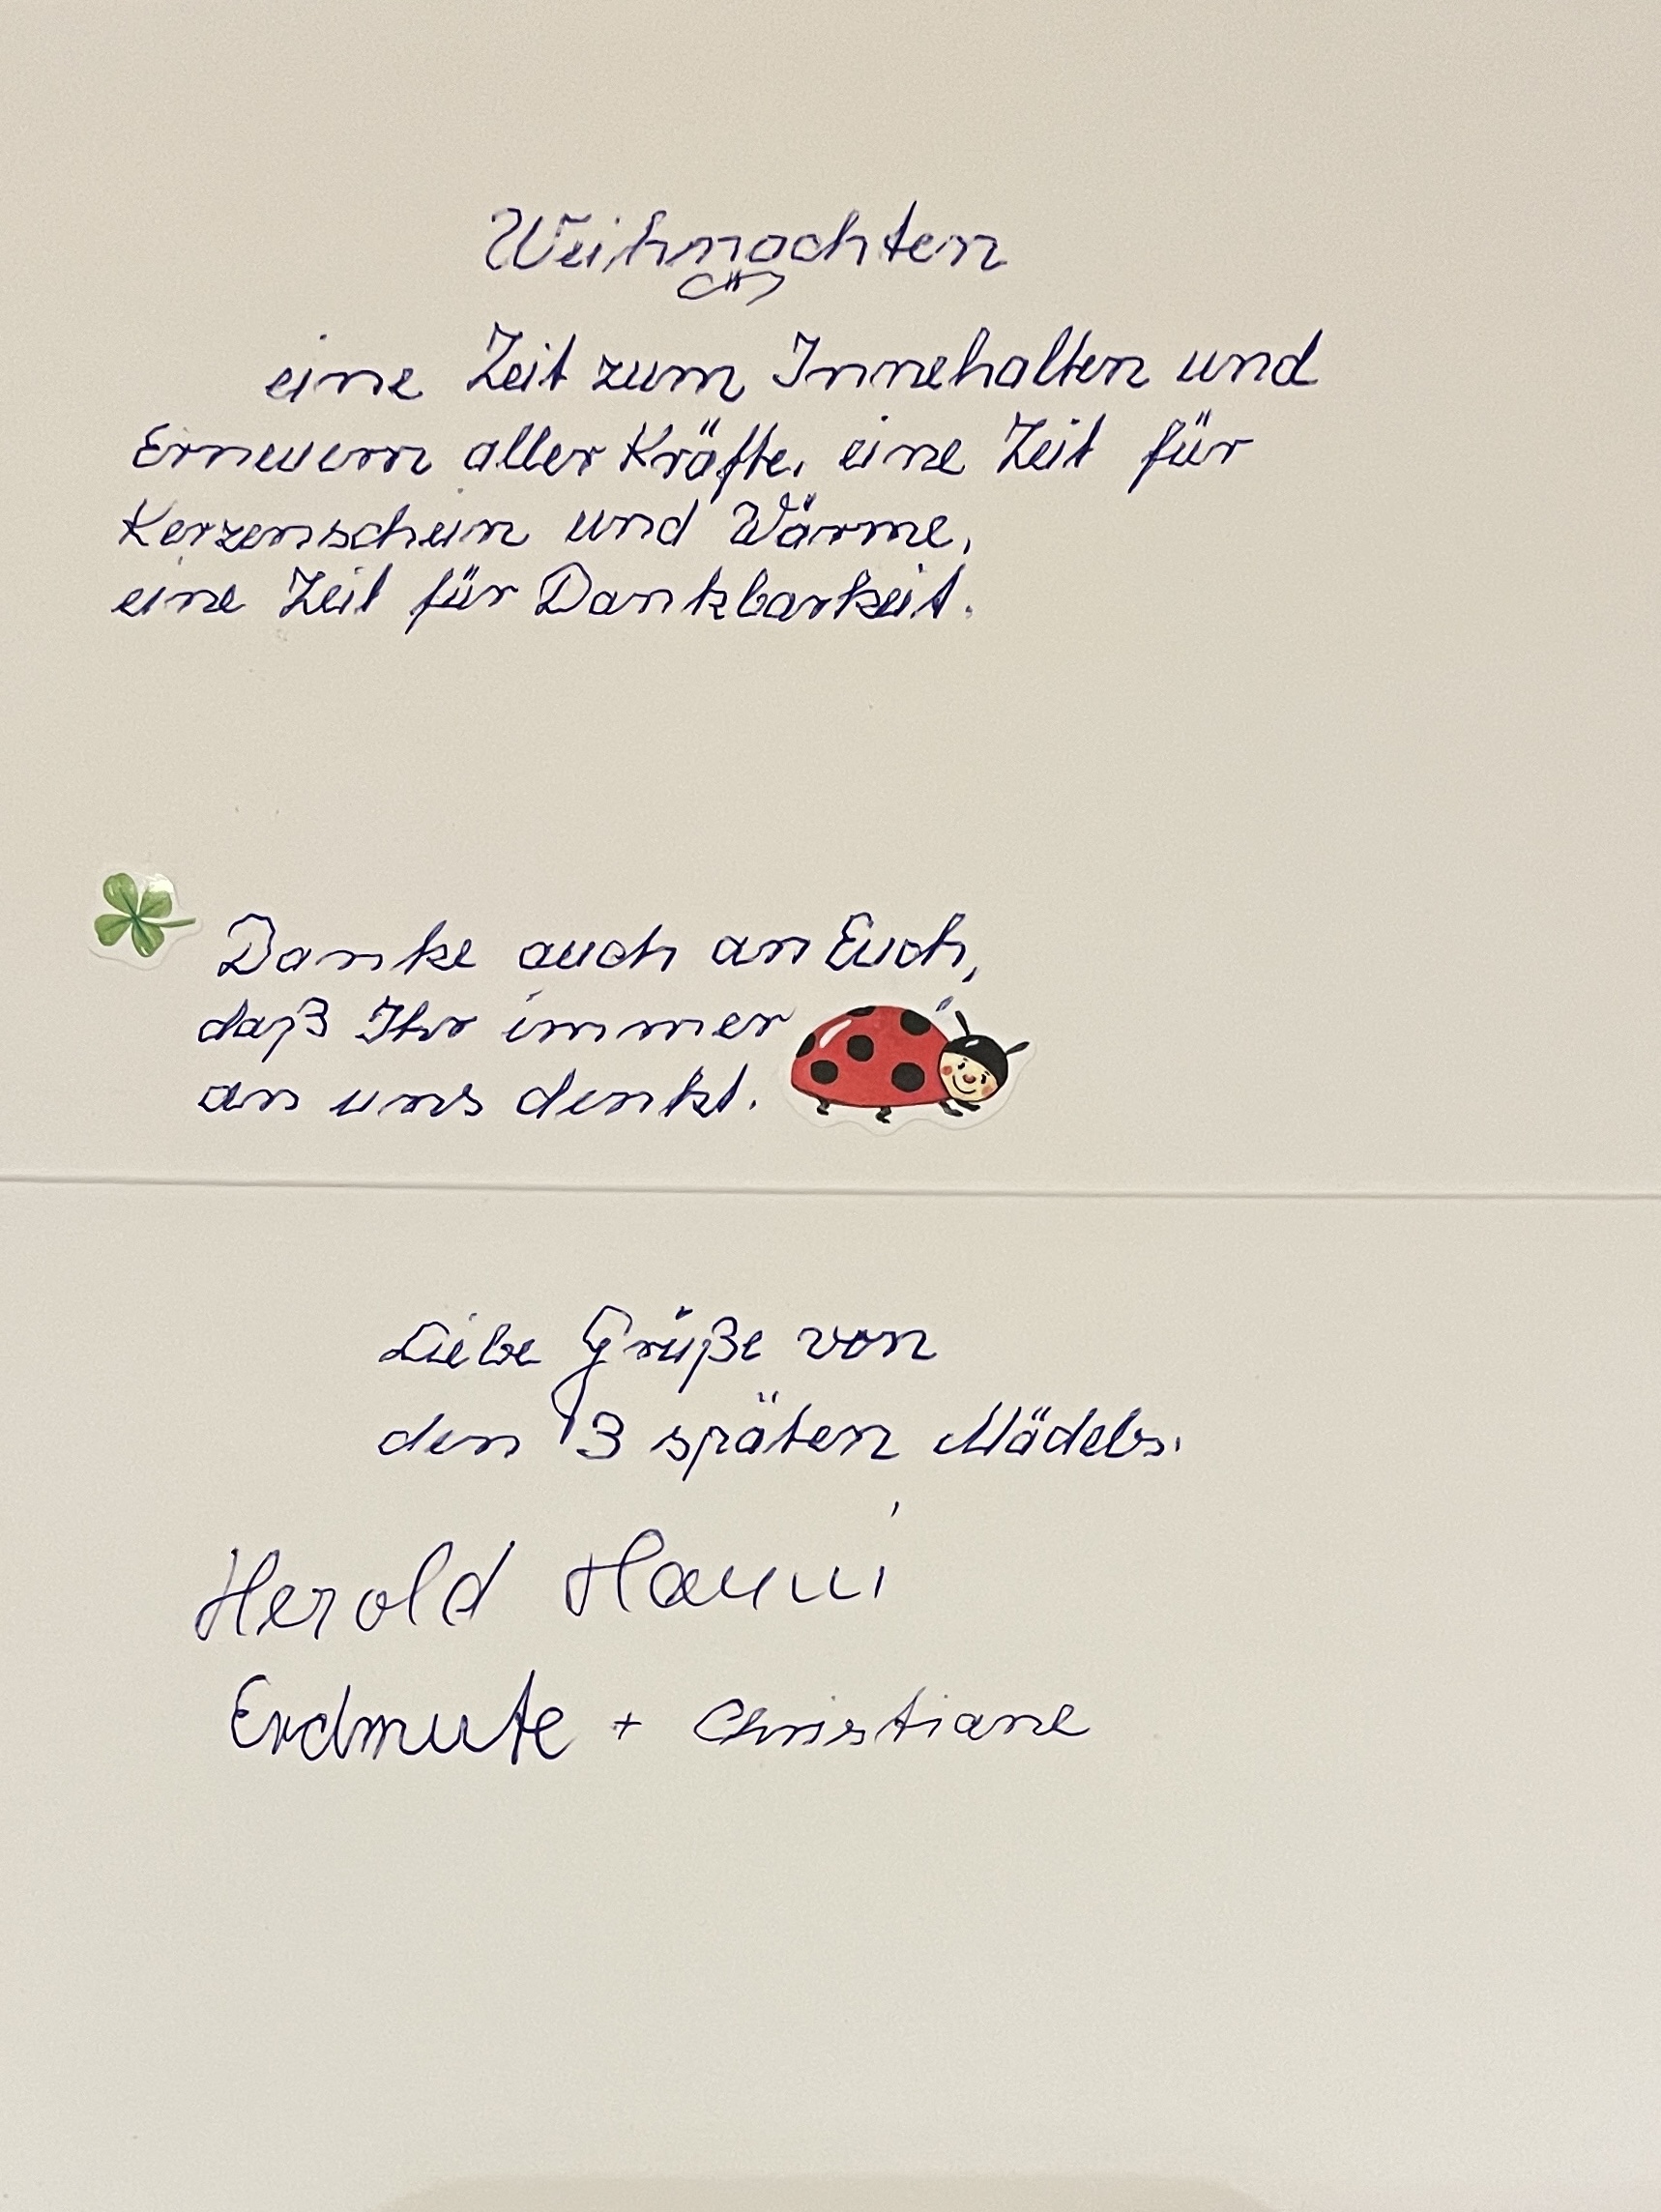 Weihnachten
eine Zeit zum Innehalten und
Erneuern aller Kräfte, eine Zeit für
Kerzenschein und Wärme,
eine Zeit für Dankbarkeit.
Danke auch an Euch,
daß Ihr immer
an uns denkt.
Liebe Grüße von
den 3 späten Mädels.
Herold Hanni
Erdmute + Christiane